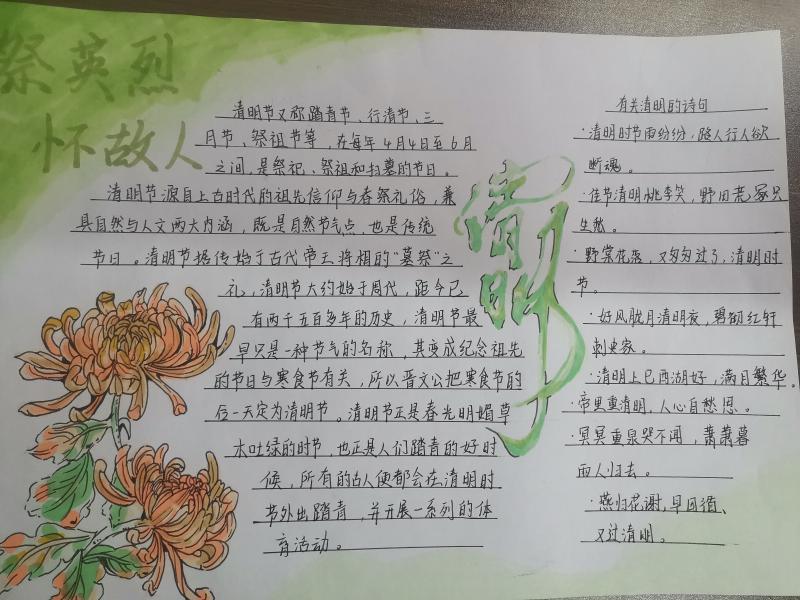 祭英烈
怀故人
清明节又称踏青节、行清节、三
月节、祭祖节等，在每年4月4日至6日
之间，是祭祀、祭祖和扫墓的节日。
清明节源自上古时代的祖先信仰与春祭礼俗，兼
具自然与人文两大内涵，既是自然节气点，也是传统
节日。清明节据传始于古代帝王将相的“墓祭”之
礼，清明节大约始于周代，距今已
有两千五百多年的历史，清明节最
早只是一种节气的名称，其变成纪念祖先
的节日与寒食节有关，所以晋文公把寒食节的
后一天定为清明节。清明节正是春光明媚草
木吐绿的时节，也正是人们踏青的好时
候，所有的古人便都会在清明时
节外出踏青，并开展一系列的体
育活动。
清明
有关清明的诗句
·清明时节雨纷纷，路人行人欲
断魂。
·佳节清明桃李笑，野田荒冢只
生愁。
·野棠花落，又匆匆过了，清明时
节。
·好风胧月清明夜，碧砌红轩
刺史家。
·清明上巳西湖好，满目繁华。
·帝里重清明，人心自愁思。
·冥冥重泉哭不闻，萧萧暮
雨人归去。
·燕归花谢，早因循、
又过清明。